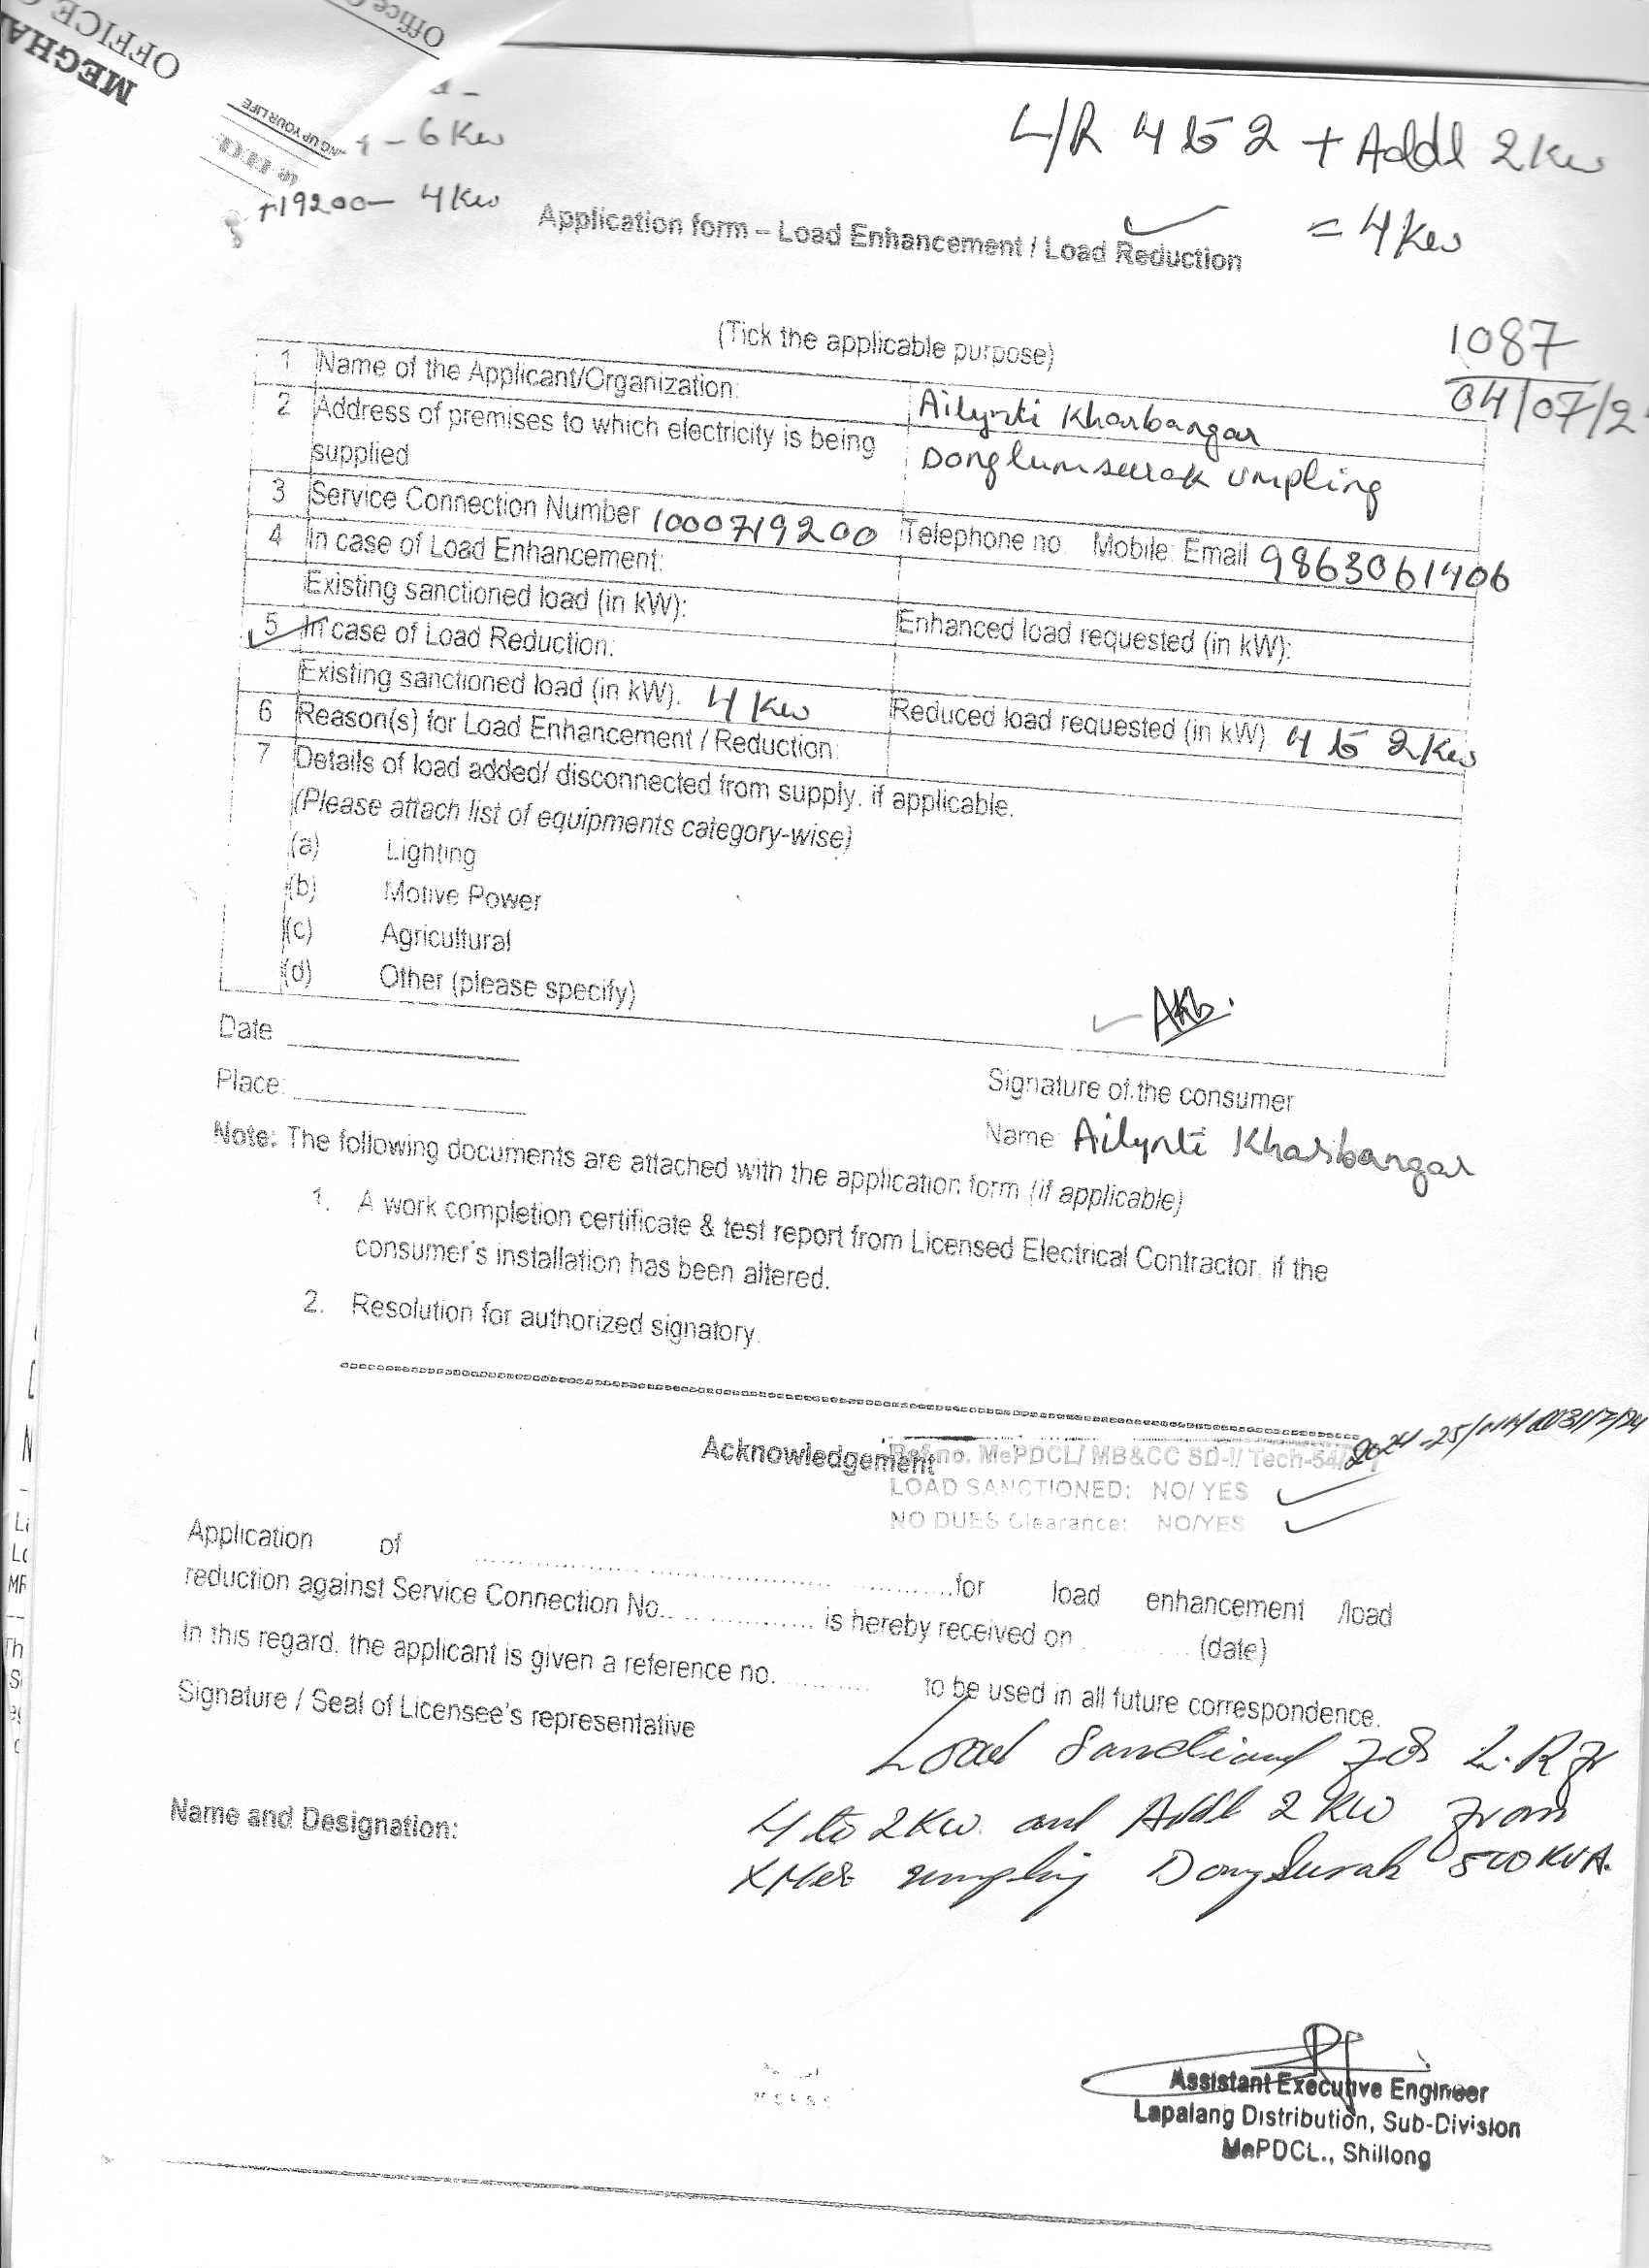 MEGHA
OFFICE
Office
NG UP YOUR LIFE
- 6 Kw
19200 - 4 Kw
L/R 4 to 2 + Addl 2 Kw
= 4 Kw
Application form – Load Enhancement / Load Reduction
(Tick the applicable purpose)
1087
04/07/2
1 Name of the Applicant/Organization: Ailynti Kharbangar
2 Address of premises to which electricity is being supplied Donglumsurok Umpling
3 Service Connection Number 1000719200 Telephone no. Mobile: Email 9863061406
4 In case of Load Enhancement:
Existing sanctioned load (in kW): Enhanced load requested (in kW):
5 In case of Load Reduction:
Existing sanctioned load (in kW). 4 Kw Reduced load requested (in kW) 4 to 2 Kw
6 Reason(s) for Load Enhancement / Reduction:
7 Details of load added/ disconnected from supply. if applicable.
(Please attach list of equipments category-wise)
(a) Lighting
(b) Motive Power
(c) Agricultural
(d) Other (please specify)
AKb.
Date
Place:
Signature of the consumer
Name Ailynti Kharbangar
Note: The following documents are attached with the application form (if applicable)
1. A work completion certificate & test report from Licensed Electrical Contractor. if the
consumer's installation has been altered.
2. Resolution for authorized signatory.
Acknowledgement
Ref.no. MePDCL/ MB&CC SD-I/ Tech-54/
LOAD SANCTIONED: NO/ YES
NO DUES Clearance: NO/YES
Application of for load enhancement /load
reduction against Service Connection No. is hereby received on (date)
In this regard. the applicant is given a reference no. to be used in all future correspondence.
Signature / Seal of Licensee's representative
Load Sanctioned for L.R fr
4 to 2 KW. and Addl 2 KW from
Name and Designation:
XMer umpling Dongsurok 500 KVA.
Assistant Executive Engineer
Lapalang Distribution, Sub-Division
MePDCL., Shillong